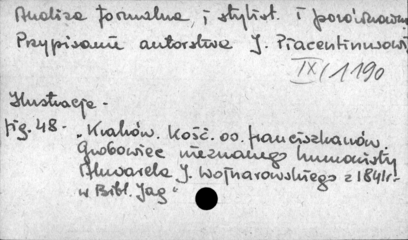 Analiza formalna, i stylist. i porównawcza
Przypisanie autorstwa J. Piacentinusowi
IX/1190
Ilustracje -
fig. 48 - "Kraków. Kość. oo. franciszkanów.
Grobowiec nieznanego humanisty
Akwarela J. Wojnarowskiego z 1841r-
w Bibl. Jag"